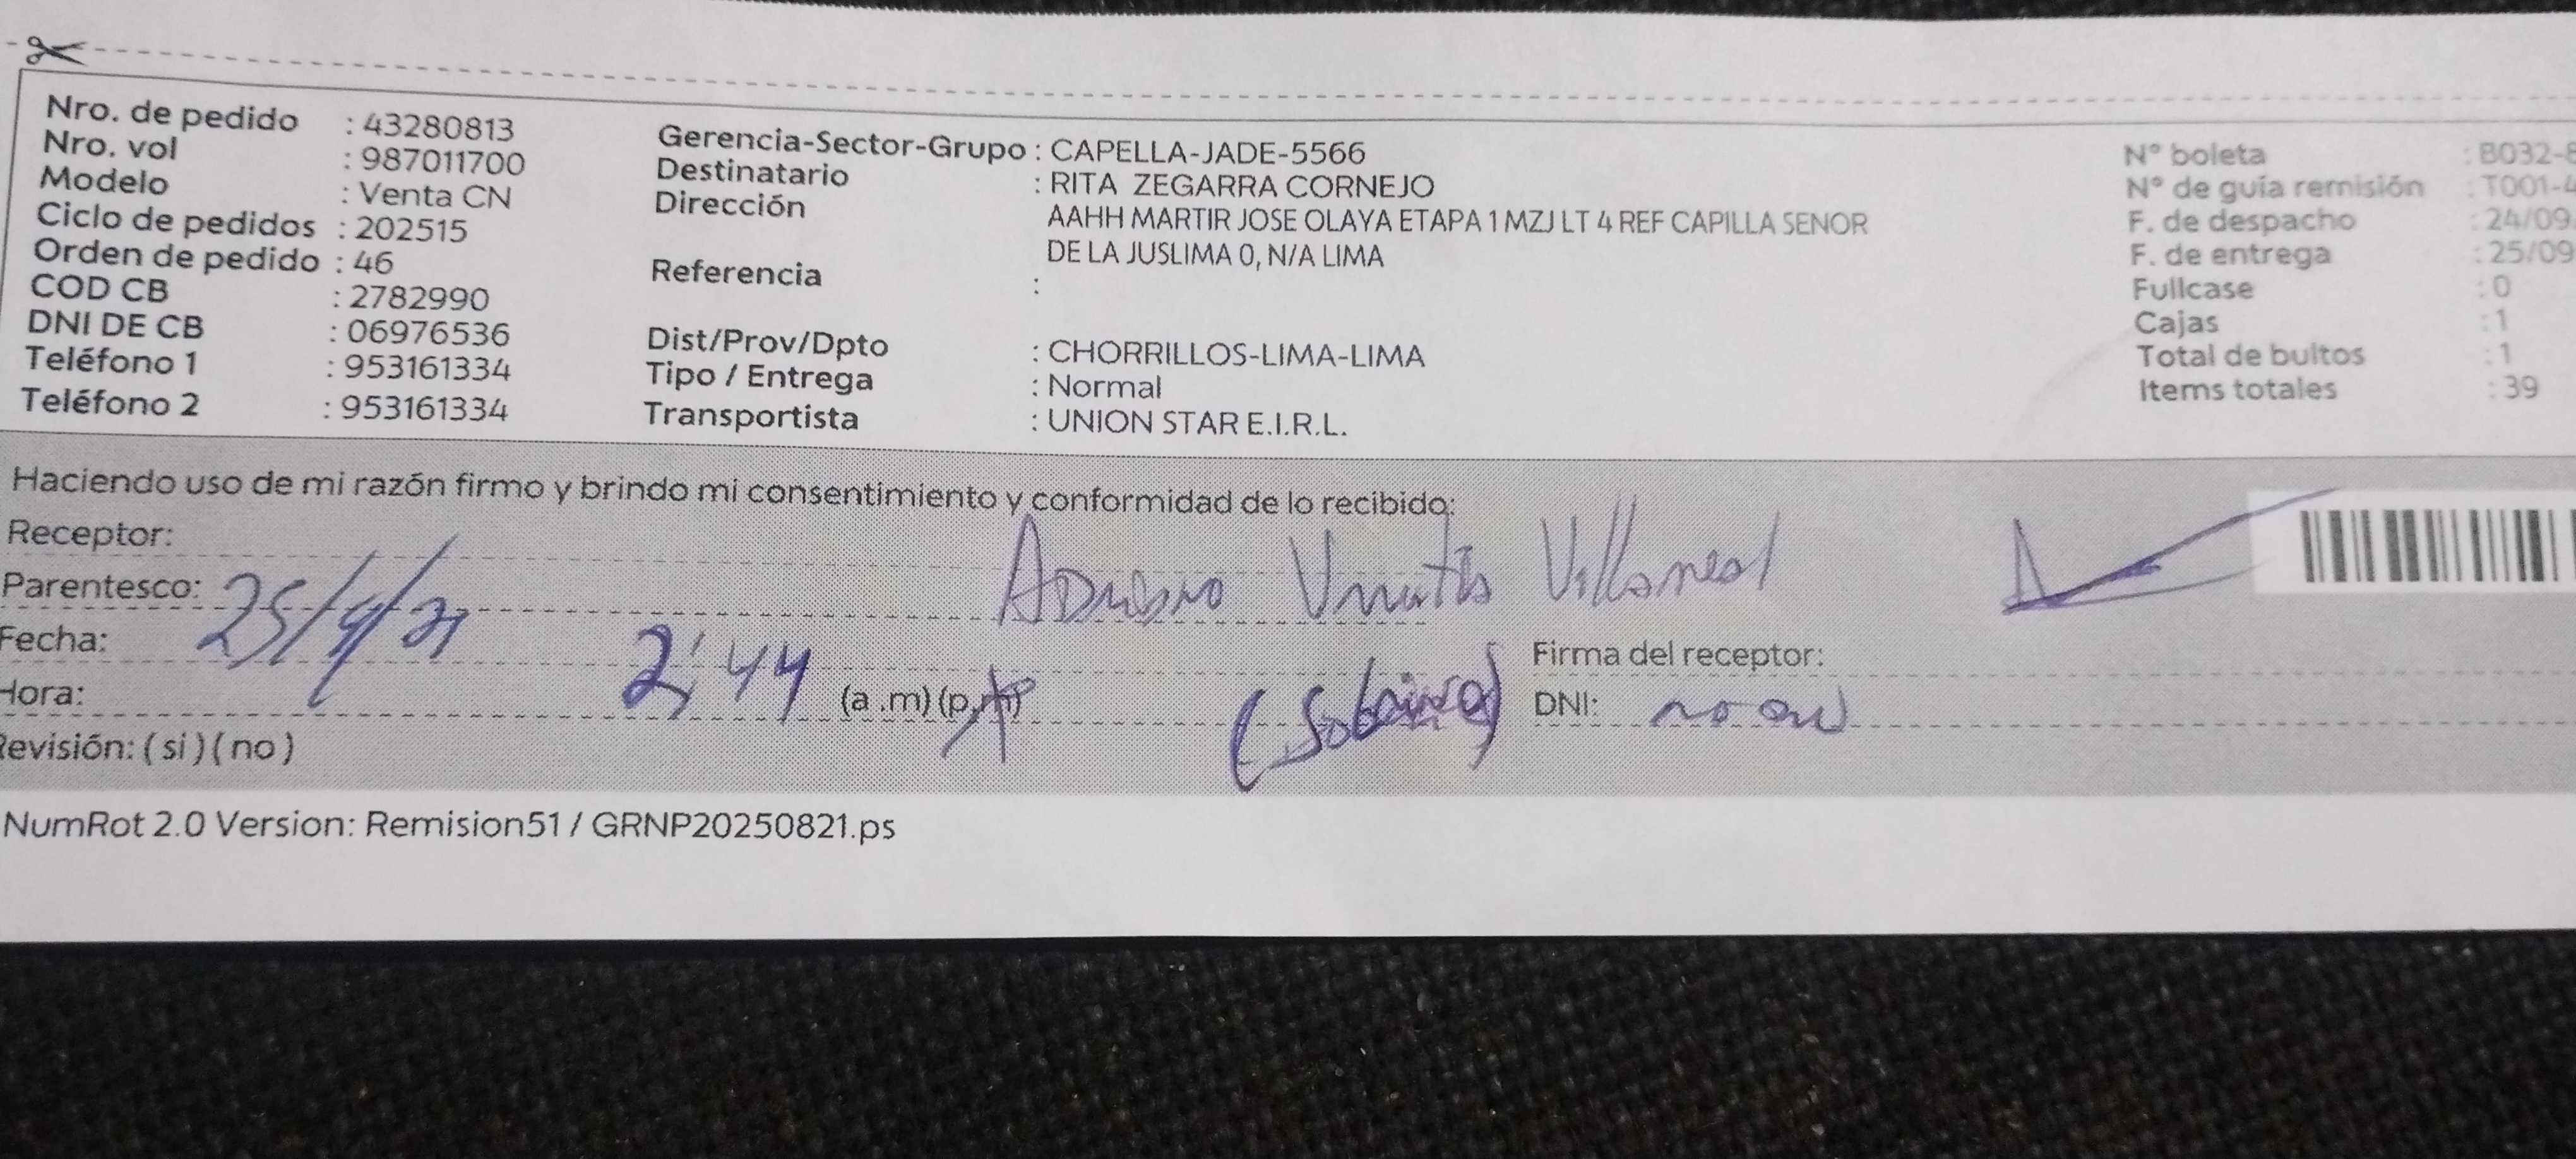 Nro. de pedido : 43280813
Nro. vol : 987011700
Modelo : Venta CN
Ciclo de pedidos : 202515
Orden de pedido : 46
COD CB : 2782990
DNI DE CB : 06976536
Teléfono 1 : 953161334
Teléfono 2 : 953161334
Gerencia-Sector-Grupo : CAPELLA-JADE-5566
Destinatario : RITA ZEGARRA CORNEJO
Dirección AAHH MARTIR JOSE OLAYA ETAPA 1 MZJ LT 4 REF CAPILLA SENOR
DE LA JUSLIMA 0, N/A LIMA
Referencia :
Dist/Prov/Dpto : CHORRILLOS-LIMA-LIMA
Tipo / Entrega : Normal
Transportista : UNION STAR E.I.R.L.
N° boleta : B032-
N° de guía remisión : T001-4
F. de despacho : 24/09
F. de entrega : 25/09
Fullcase : 0
Cajas : 1
Total de bultos : 1
Items totales : 39
Haciendo uso de mi razón firmo y brindo mi consentimiento y conformidad de lo recibido:
Receptor:
Parentesco:
Fecha: 25/9/
Hora: 2:44 (a.m) (p.m)
Revisión: ( si ) ( no )
Villareal
(Sobrino)
Firma del receptor:
DNI: no
NumRot 2.0 Version: Remision51 / GRNP20250821.ps